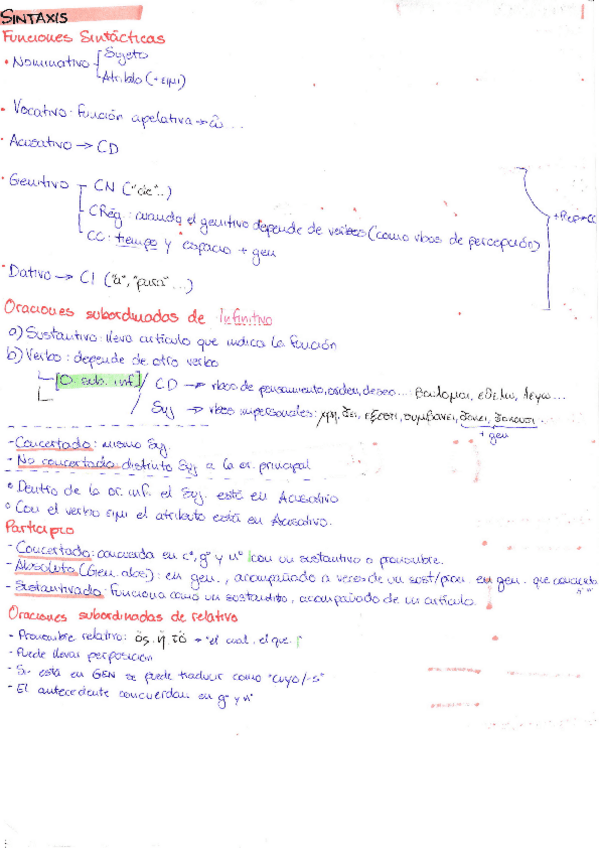 SINTAXIS
Funciones Sintácticas
• Nominativo { Sujeto
Atributo (+ειμι)
• Vocativo: Función apelativa → ὦ ...
• Acusativo → CD
• Genitivo CN ("de"..)
CRég.: cuando el genitivo depende de verbos (como vbos de percepción)
CC: tiempo y espacio + gen
+Prep=CC
• Dativo → CI ("a", "para"...)
Oraciones subordinadas de Infinitivo
a) Sustantivo: lleva artículo que indica la función
b) Verbo: depende de otro verbo
[O. sub. inf.] / CD → vbos de pensamiento, orden, deseo ... : βουλομαι, εθελω, λεγω...
/ Suj → vbos impersonales: χρη, δει, εξεστι, συμβαινει, δοκει,
+ gen
- Concertado: mismo Suj.
- No concertado distinto Suj a la or. principal
° Dentro de la or. inf. el Suj. está en Acusativo
° Con el verbo ειμι el atributo está en Acusativo.
Participio
- Concertado: concuerda en cº, gº y nº con un sustantivo o pronombre.
- Absoluto (Gen. abs.): en gen., acompañado a veces de un sost/pron. en gen. que concuerda
- Sustantivado: Funciona como un sustantivo, acompañado de un artículo.
Oraciones subordinadas de relativo
- Pronombre relativo: ὅς, ἥ, τὅ → "el cual, el que"
- Puede llevar perposición
- Si está en GEN se puede traducir como "cuyo/-s"
- El antecedente concuerdan en gº y nº